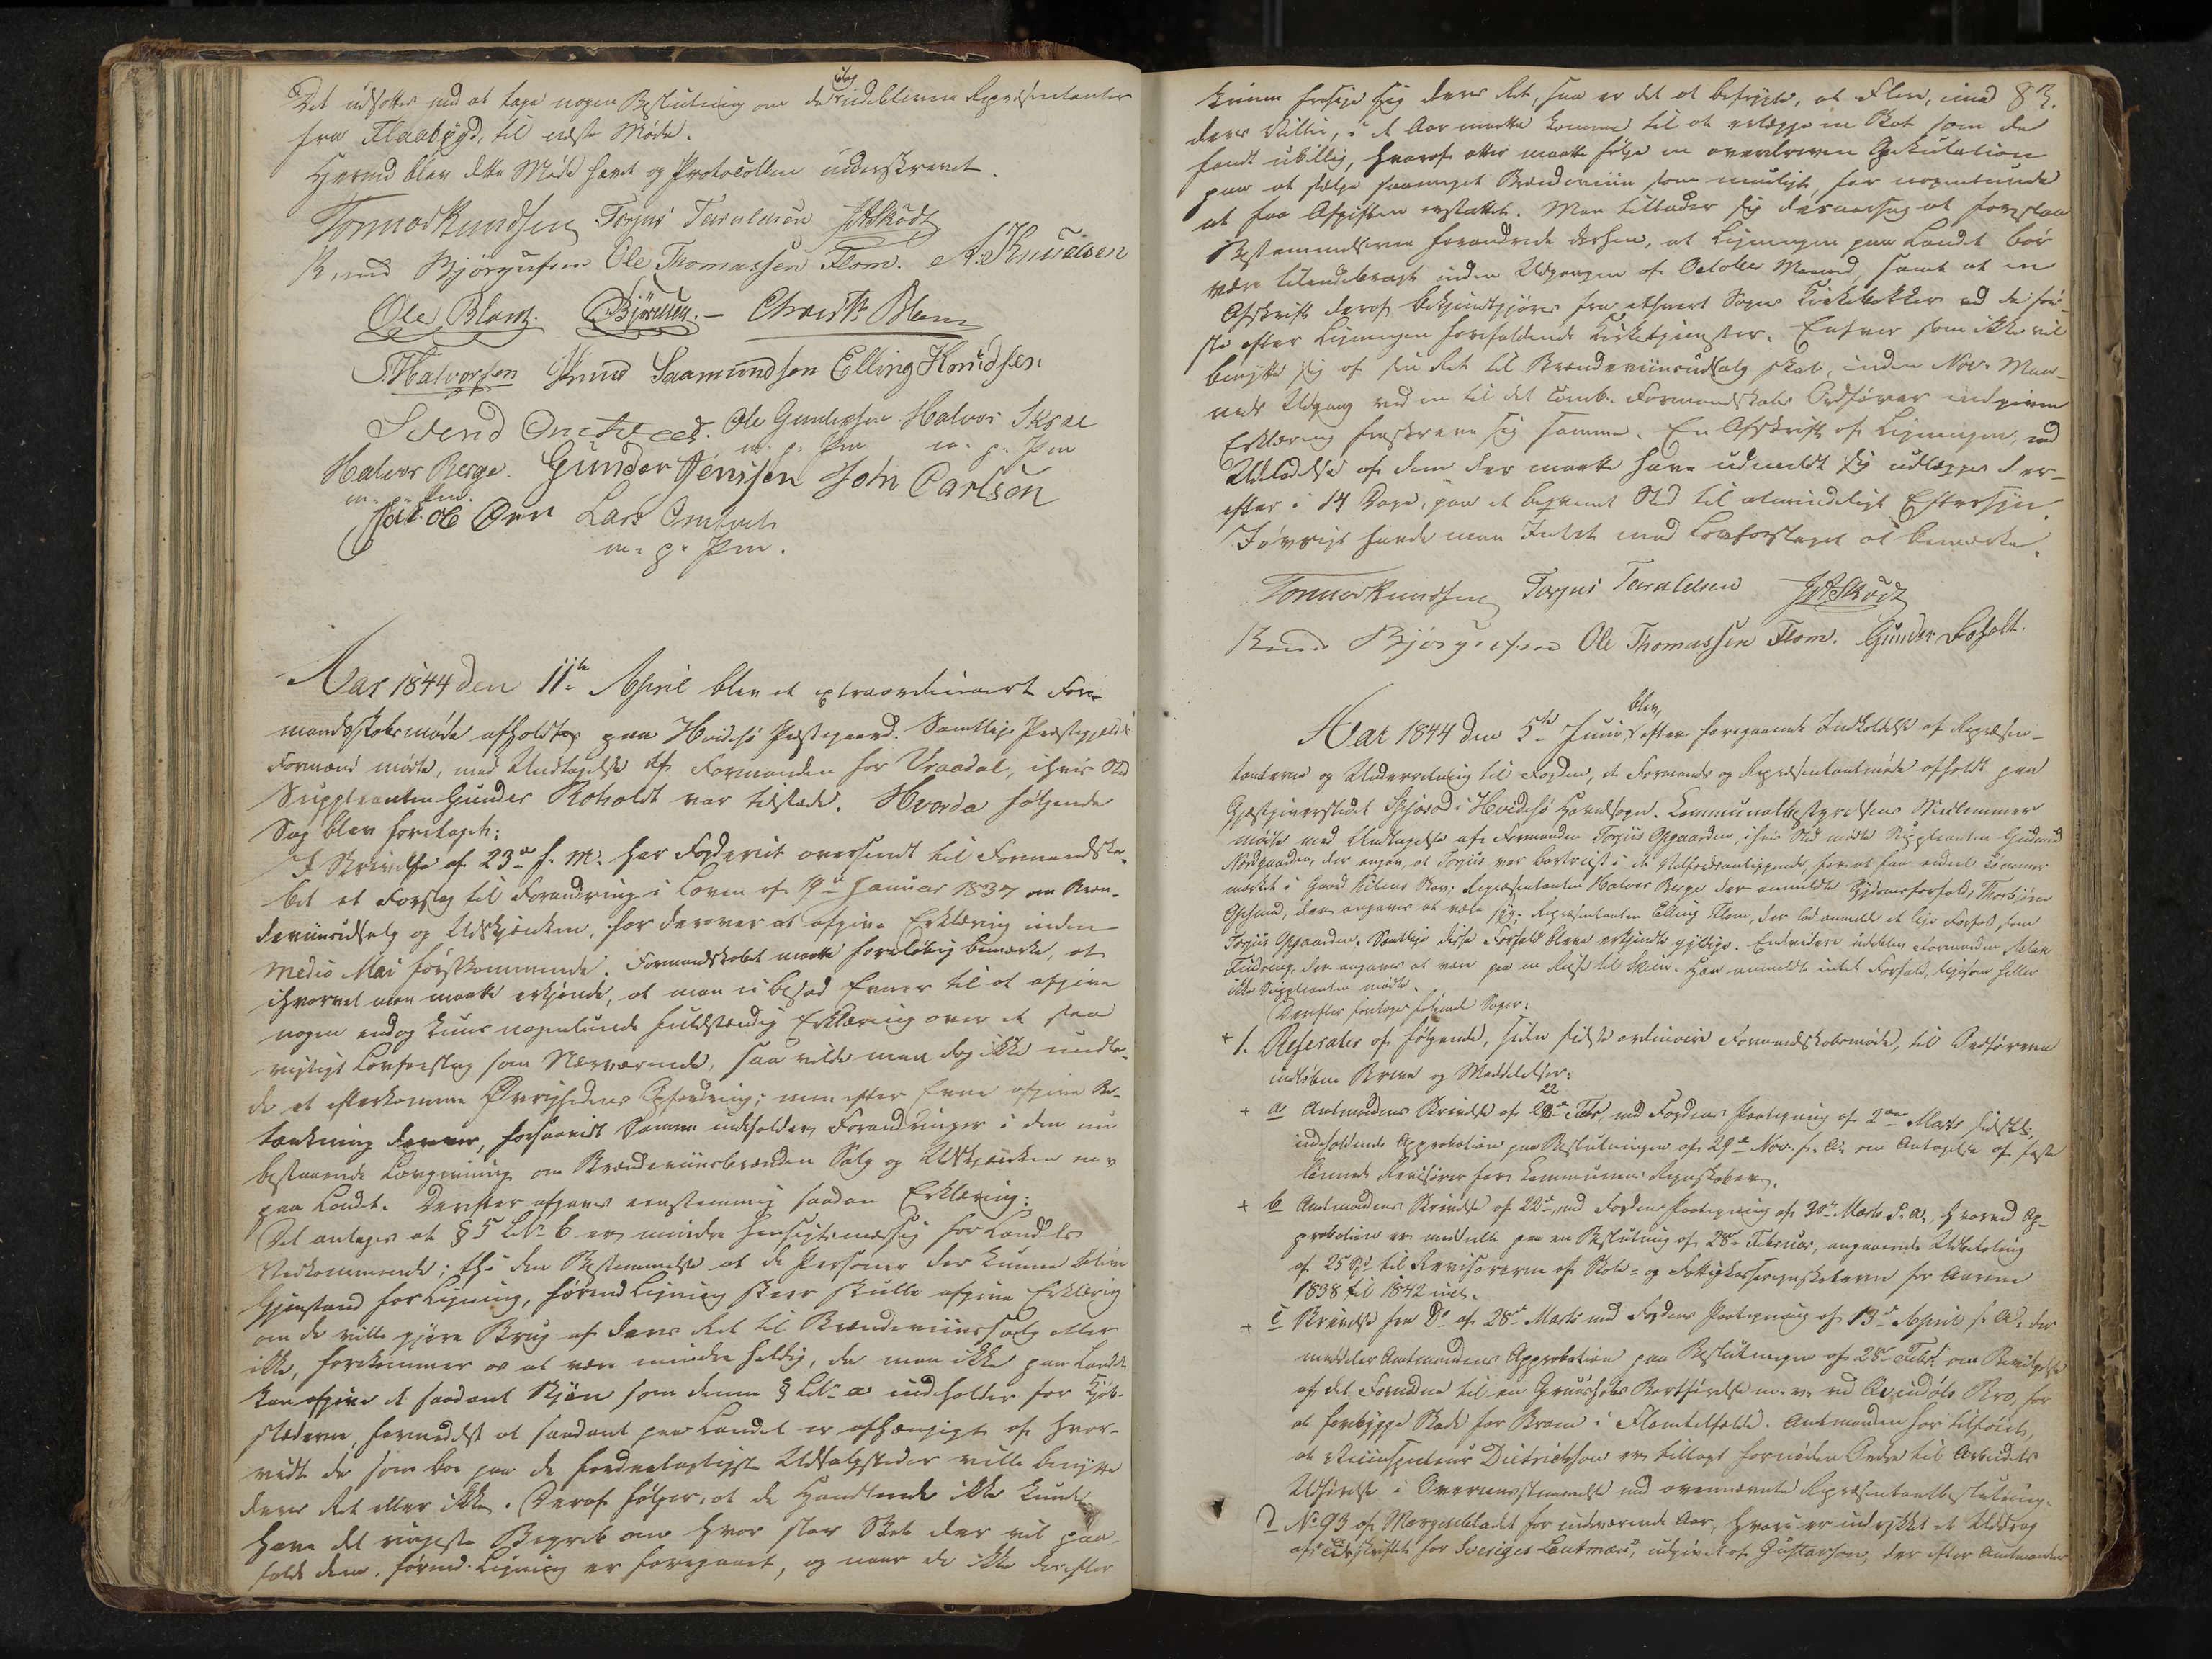 Det udsættes med at tage nogen Beslutning om de idag udeblevne Repræsentanter
fra Flaabygd, til næste Møde.
Hermed blev dette Møde hævet og Protocollen underskrevet.
Tormod Knudsen Torjus Taraldsen JASkødt
Knud Bjørgufsen Ole Thomassen Flom. A. Knudsen
Ole Blom. Bjørnsen. – Christ: Blom
S. Halvorsen Knud Saamundsen Elling Knudsen
Svend Ole Gunleksen Halvor Skrae
m. p. Pen m. p. Pen
Halvor Berge. Gunder Jensen John Carlsen
m. p. Pen.
Jacob Lars
m. p. Pen.
Aar 1844 den 11te April blev et extraordinairt For-
mandskabsmøde afholdt paa Hvidesø Præstegaard. Samtlige Præstegjeldets
Formænd mødte, med Undtagelse af Formanden for Vraadal, i hvis Sted
Suppleanten Gunder Roholdt var tilstede. Hvorda følgende
Sag blev foretaget:
I Skrivelse af 23de f. M. har Fogderiet oversendt til Formandska-
bet et Forslag til Forandring i Loven af Januar 1837 om Bræn-
deviinsudsalg og Udskjænken, for derover at afgive Erklæring inden
medio Mai førstkommende. Formandskabet maatte foreløbig bemærke, at
ihvorvel man maatte erkjende, at man ei besad Evner til at afgive
nogen endog kuns nogenlunde fuldstændig Erklæring over et saa
vigtigt Lovforslag som Nærværende, saa vilde man dog ikke undla-
de at efterkomme Øvrighedens Opfordring; men efter Evne afgive Be-
tænkning derover, forsaavidt Samme indeholder Forandringer i den nu
bestaaende Lovgivning om Brændeviinsbrænden Salg og Udskjænken m. v.
paa Landet. Derefter afgaves eenstemmig saadan Erklæring:
Det antages at § 5 Litr. b er mindre hensigtsmæssig for Landets
Vedkommende; thi den Bestemmelse at de Personer der kunne blive
Gjenstand for Ligning, førend Ligning skeer skulle afgive Erklæring
om de ville gjøre Brug af deres Ret til Brændeviinssalg eller
ikke, forekommer os at være mindre heldig, da man ikke paa Landet
kan afgive et saadant Skjøn som denne § Litr. a indeholder for Kjøb-
stæderne, formedelst at saadant paa Landet er afhængigt af hvor-
vidt de som boe paa de fordeelagtigste Udsalgsteder ville benytte
deres Ret eller ikke. Deraf følger, at de Handlende ikke kunde
have det ringeste Begreb om hvor stor Skat der vil paa-
falde dem, førend Ligning er foregaaet, og naar de ikke derefter
83.
kunne frasige sig deres Ret, saa er det at befrygte, at Flere, imod
deres Villie, i et Aar maatte komme til at erlægge en Skat som de
fandt ubillig, hvoraf atter maatte følge en overdreven Speculation
paa at sælge saameget Brændeviin som muligt, for nogenlunde
at faa Afgiften erstattet. Man tillader sig desaarsag at foreslaa
Bestemmelserne forandrede derhen, at Ligningen paa Landet bør
være tilendebragt inden Udgangen af October Maaned, samt at en
Afskrift deraf bekjendtgjøres fra ethvert Sogns Kirkebakke ved de før-
ste efter Ligningen forefaldende Kirketjenester. Enhver som ikke vil
benytte sig af sin Ret til Brændeviinsudsalg skal, inden Nov. Maa-
neds Udgang ved en til det comb. Formandskabs Ordfører indgiven
Erklæring fraskrive sig samme. En Afskrift af Ligningen, med
Udeladelse af dem der maatte have udmeldt sig udlægges der-
efter i 14 Dage, paa et beqvemt Sted til almindeligt Eftersyn.
Iøvrigt havde man Intet mod Lovforslaget at bemærke.
Tormod Knudsen Torjus Taraldsen JASkødt
Knud Bjørgufsen Ole Thomassen Flom. Gunder Roholt.
Aar 1844 den 5te Juni blev, efter foregaaende Indkaldelse af Repræsen-
tanterne og Underretning til Fogden, et Formands og Repræsentantmøde afholdt paa
Gjæstgiverstedet i Hvidesø Hovedsogn. Communalbestyrelsens Medlemmer
mødte med Undtagelse af Formanden Torjus Opgaarden, i hvis Sted mødte Suppleanten Gudmund
Nordgaarden, der angav, at Torjus var bortreist i et Velfærdsanliggende, for at faa endeel Tømmer
mærket i Repræsentanten Halvor Berge der anmeldte Sygdomsforfald, Thorbjørn
der angaves at være syg; Repræsentanten Elling Flom, der lod anmelde et lige Forfald, som
Torjus Opgaarden. Samtlige disse Forfald bleve erkjendte gyldige. Endvidere udeblev Formanden Aslak
der angaves at være paa en Reise til Skien. Han anmeldte intet Forfald, ligesom heller
ikke Suppleanten mødte.
Derefter foretoges følgende Sager:
+ 1. Referates af følgende, siden sidste ordinaire Formandskabsmøde, til Ordføreren
indløbne Breve og Meddelelser:
+ a Amtmandens Skrivelse af 22de Febr, med Fogdens Paategning af 2den Marts sidstl.
indeholdende Approbation paa Beslutningen af 29de Nov. f. A. om Antagelse af faste
lønnede Revisorer for Communens Regnskaber.
+ b Amtmandens Skrivelse af 22de, med Fogdens Paategning af 30te Marts d. A. hvorved Ap-
probation er meddeelt paa en Beslutning af 28de Februar, angaaende Udbetaling
af 25 Spd til Revisorerne af Skole- og Fattigkasseregnskaberne for Aarene
1838 til 1842 incl.
+ c Skrivelse fra Do af 28de Marts med Fogdens Paategning af 13de April s. A. der
meddeler Amtmandens Approbation paa Beslutningen af 28de Febr. om Bevilgelse
af det Fornødne til en Gruushobs Bortførelse m. v. ved Bro, for
at forebygge Skade for Broen i Flomtilfælde. Amtmanden har tilføiet,
at Veiinspecteur Dietrichson er tillagt fornøden Ordre til Arbeidets
Udførelse i Overeensstemmelse med ovennævnte Repræsentantbeslutning.
d No 93 af Morgenbladet for indeværende Aar, hvori er indrykket et Uddrag
af "Tidsskrift for Sveriges Landtmæn", udgivet af Gustafson, der efter Amtmandens